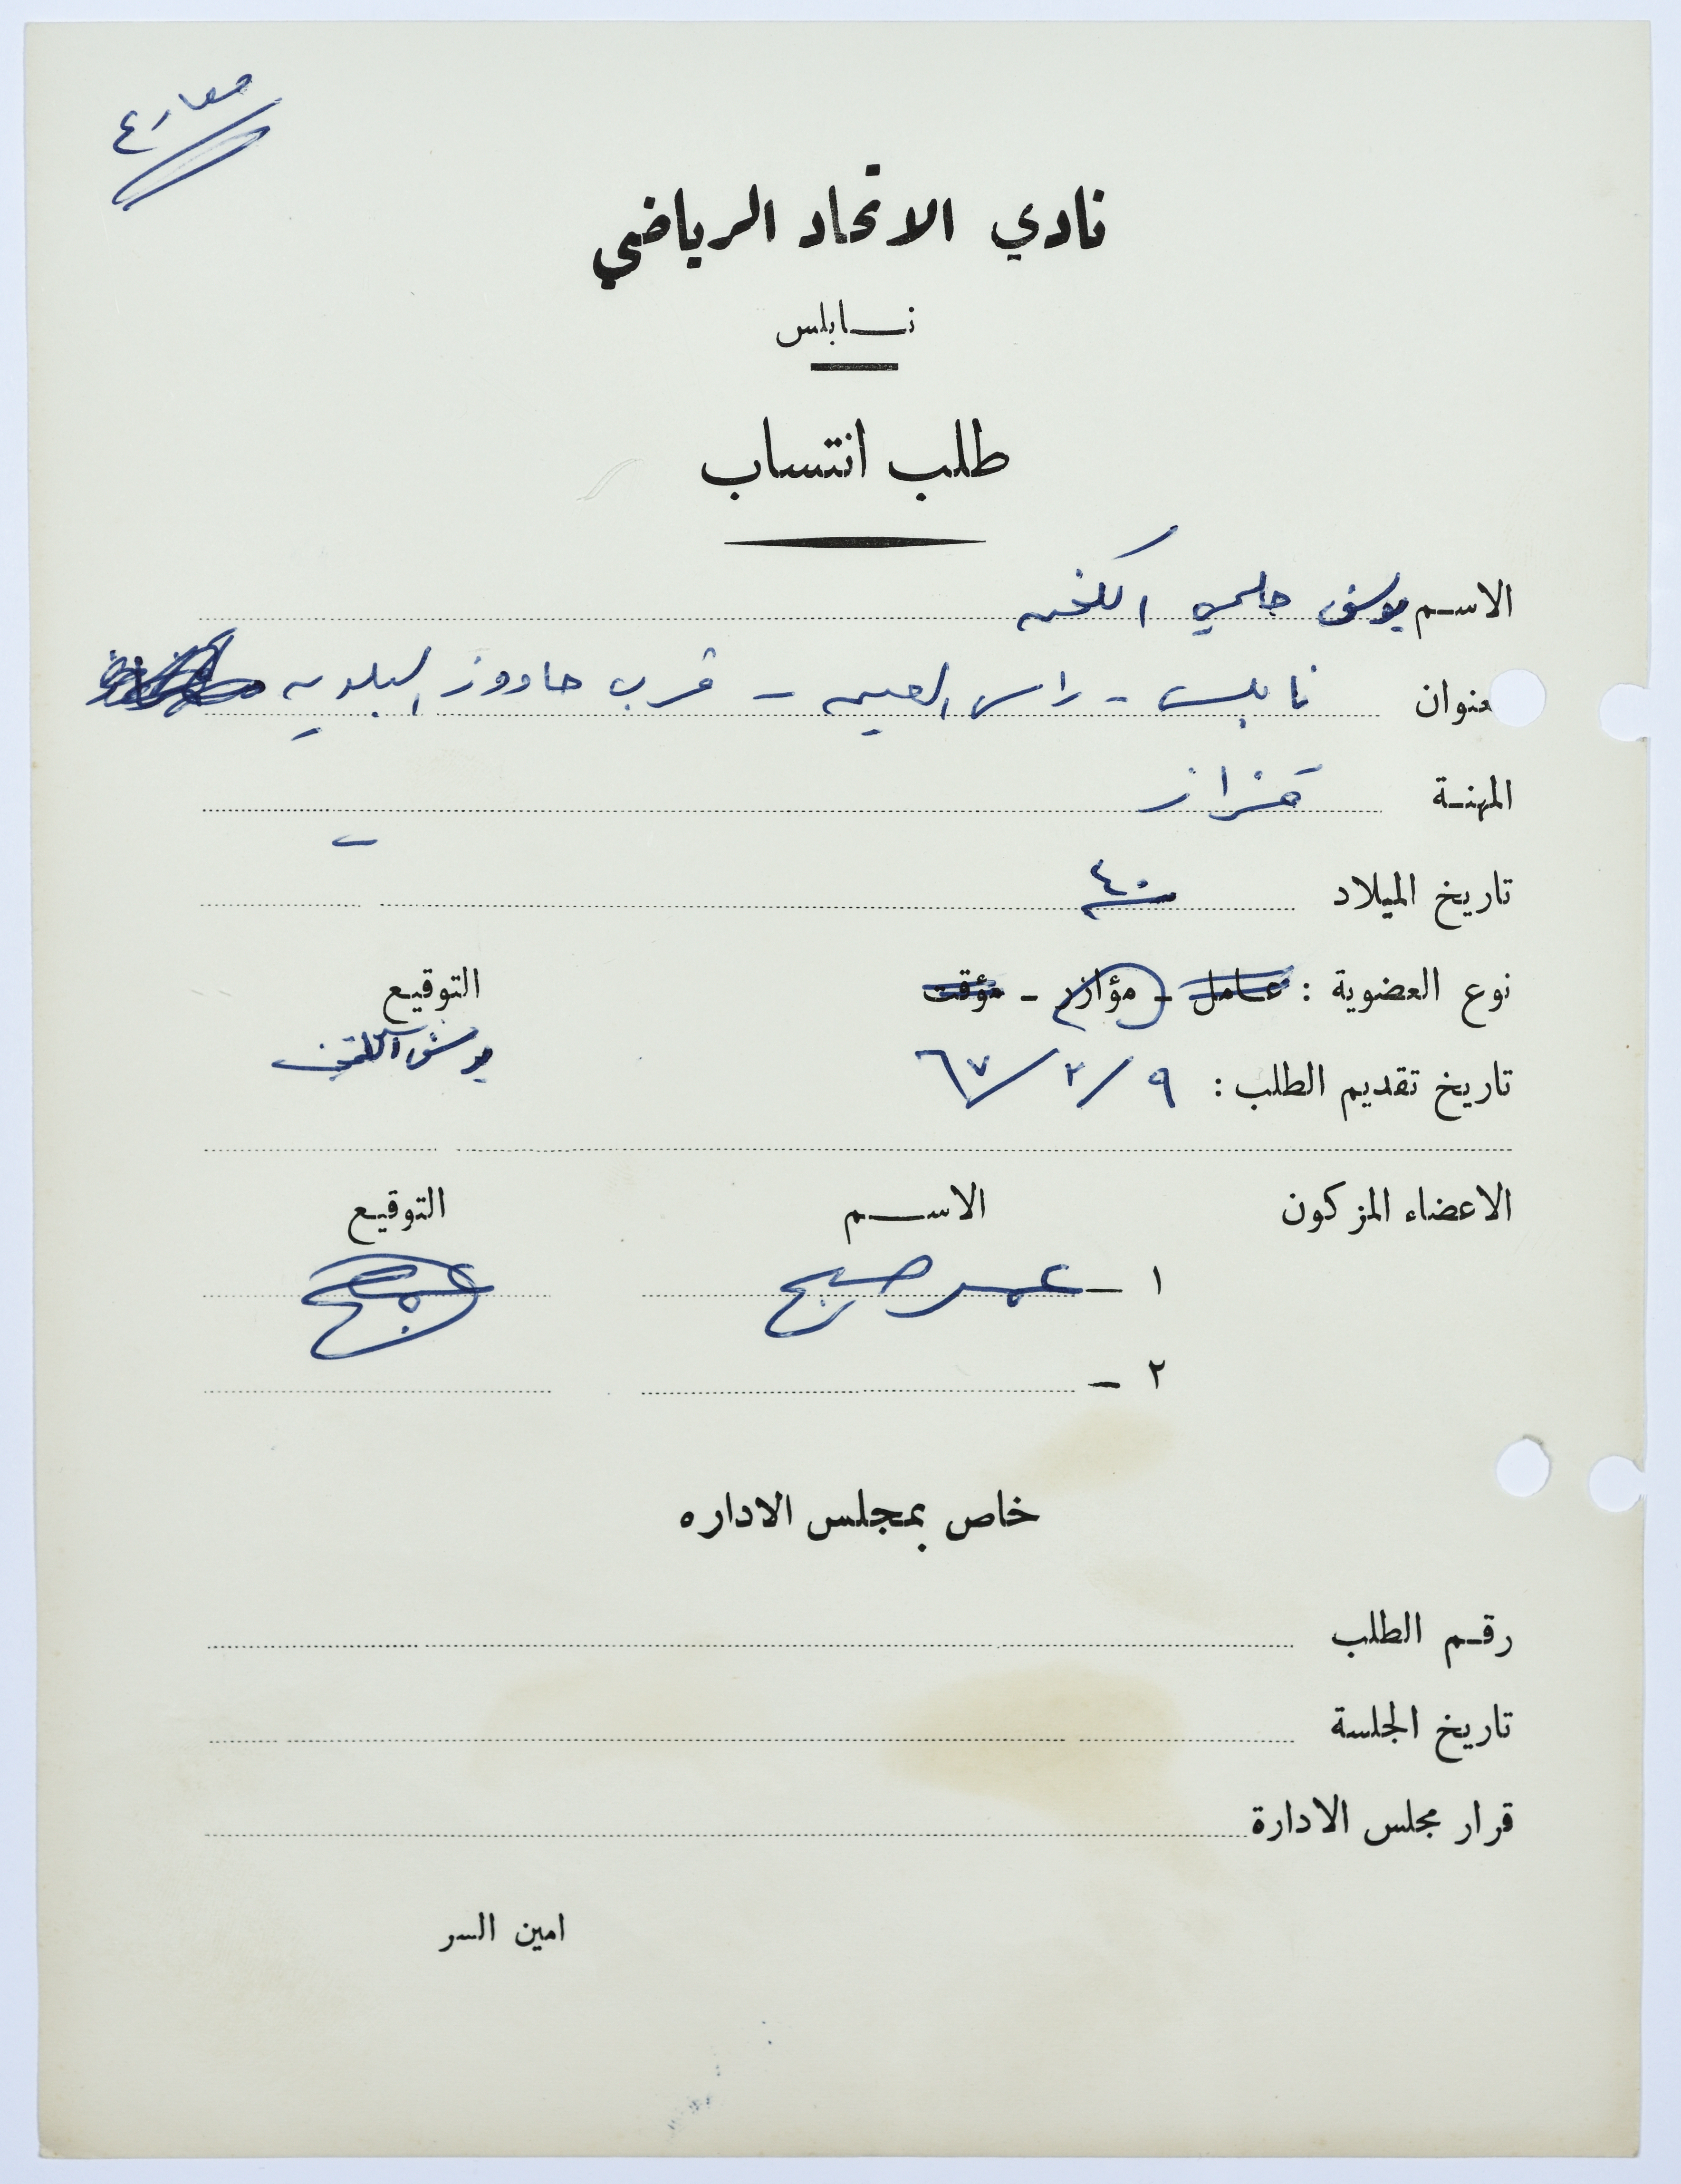 مصارع
نادي الاتحاد الرياضي
نـــابلس
طلب انتساب
الاسـم يوسف حلمي
عنوان نابلس - راس العين - قرب حاووز البلديه
المهنـة قزاز
تاريخ الميلاد سنة ٤٠
نوع العضوية : عـامل - مؤازر - مؤقت التوقيـع
تاريخ تقديم الطلب : ٩ / ٢ / ٦٧ يوسف
الاعضاء المزكون الاســـم التوقيـع
١ - عمر صبح
٢ -
خاص بمجلس الاداره
رقـم الطلب
تاريخ الجلسة
قرار مجلس الادارة
امين السر